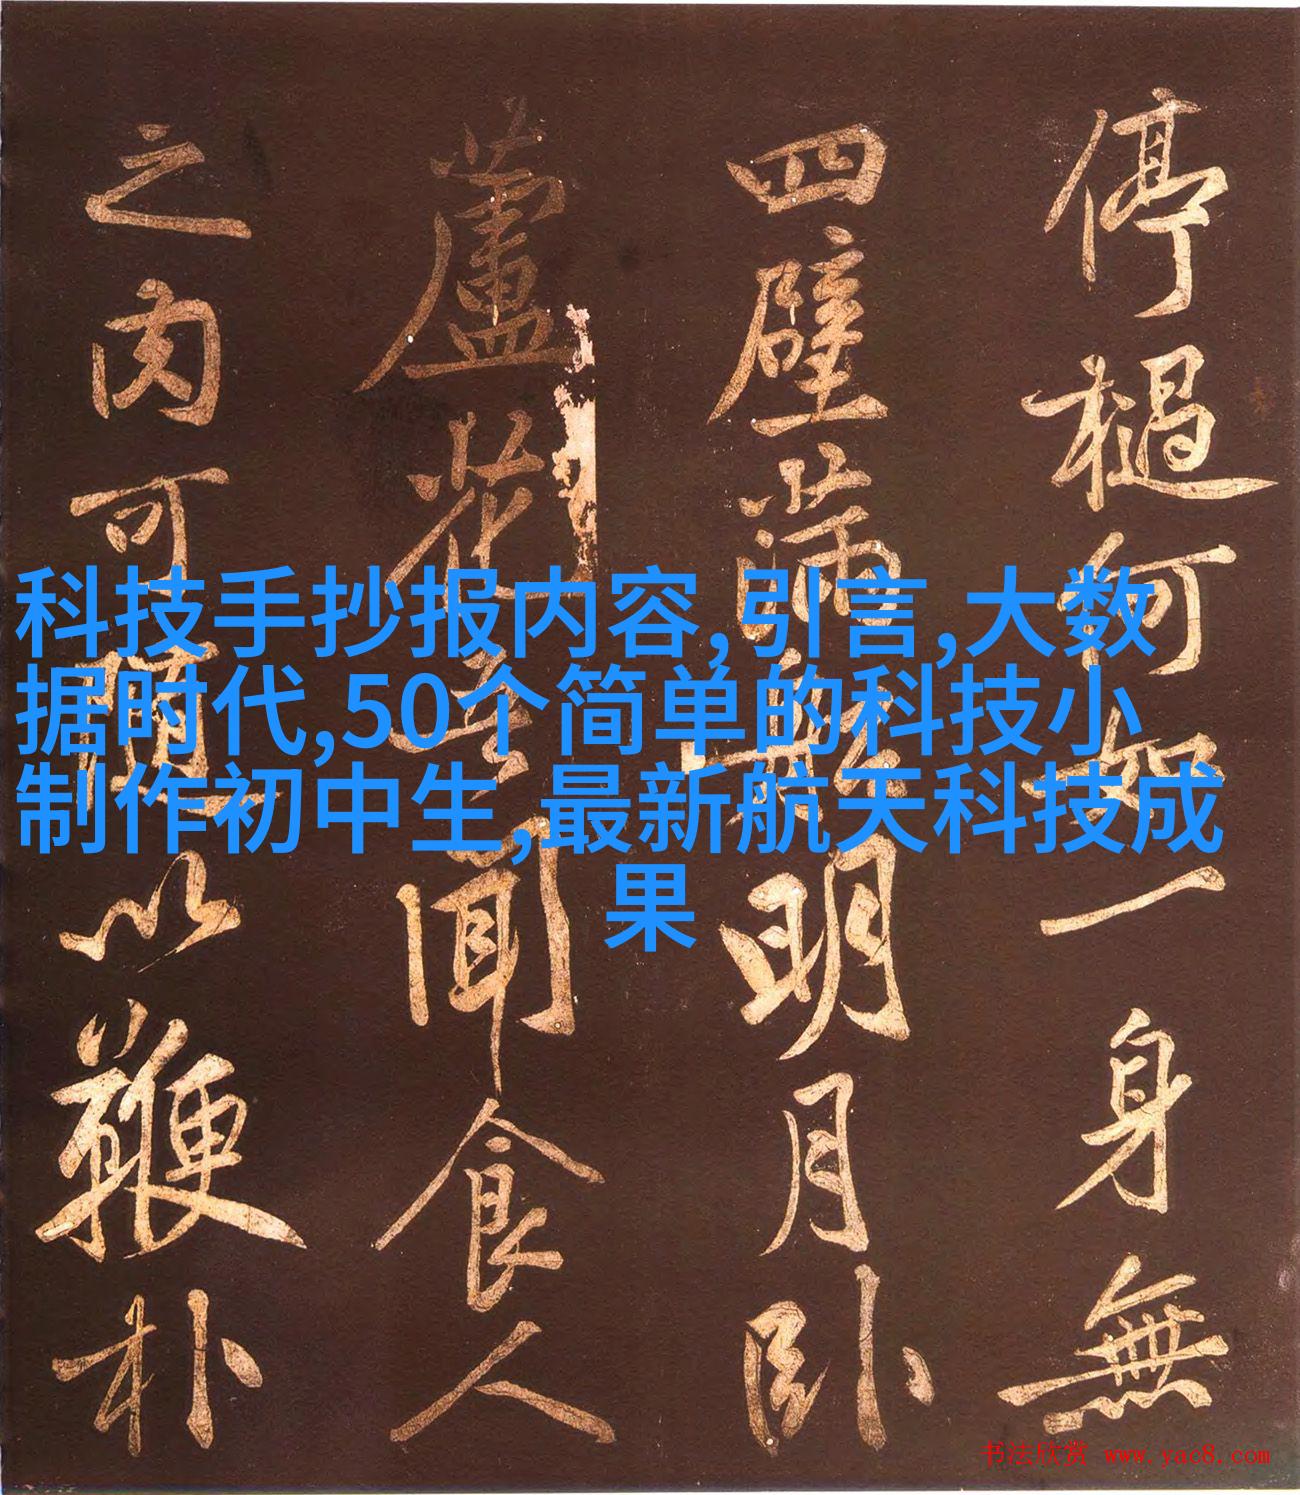 停檛何如一身無
四壁滿船明月臥
蘆花吾聞食人
之肉可隨以鞭朴
科技手抄报内容,引言,大数
据时代,50个简单的科技小
制作初中生,最新航天科技成
果
书法欣赏 www.yac8.com